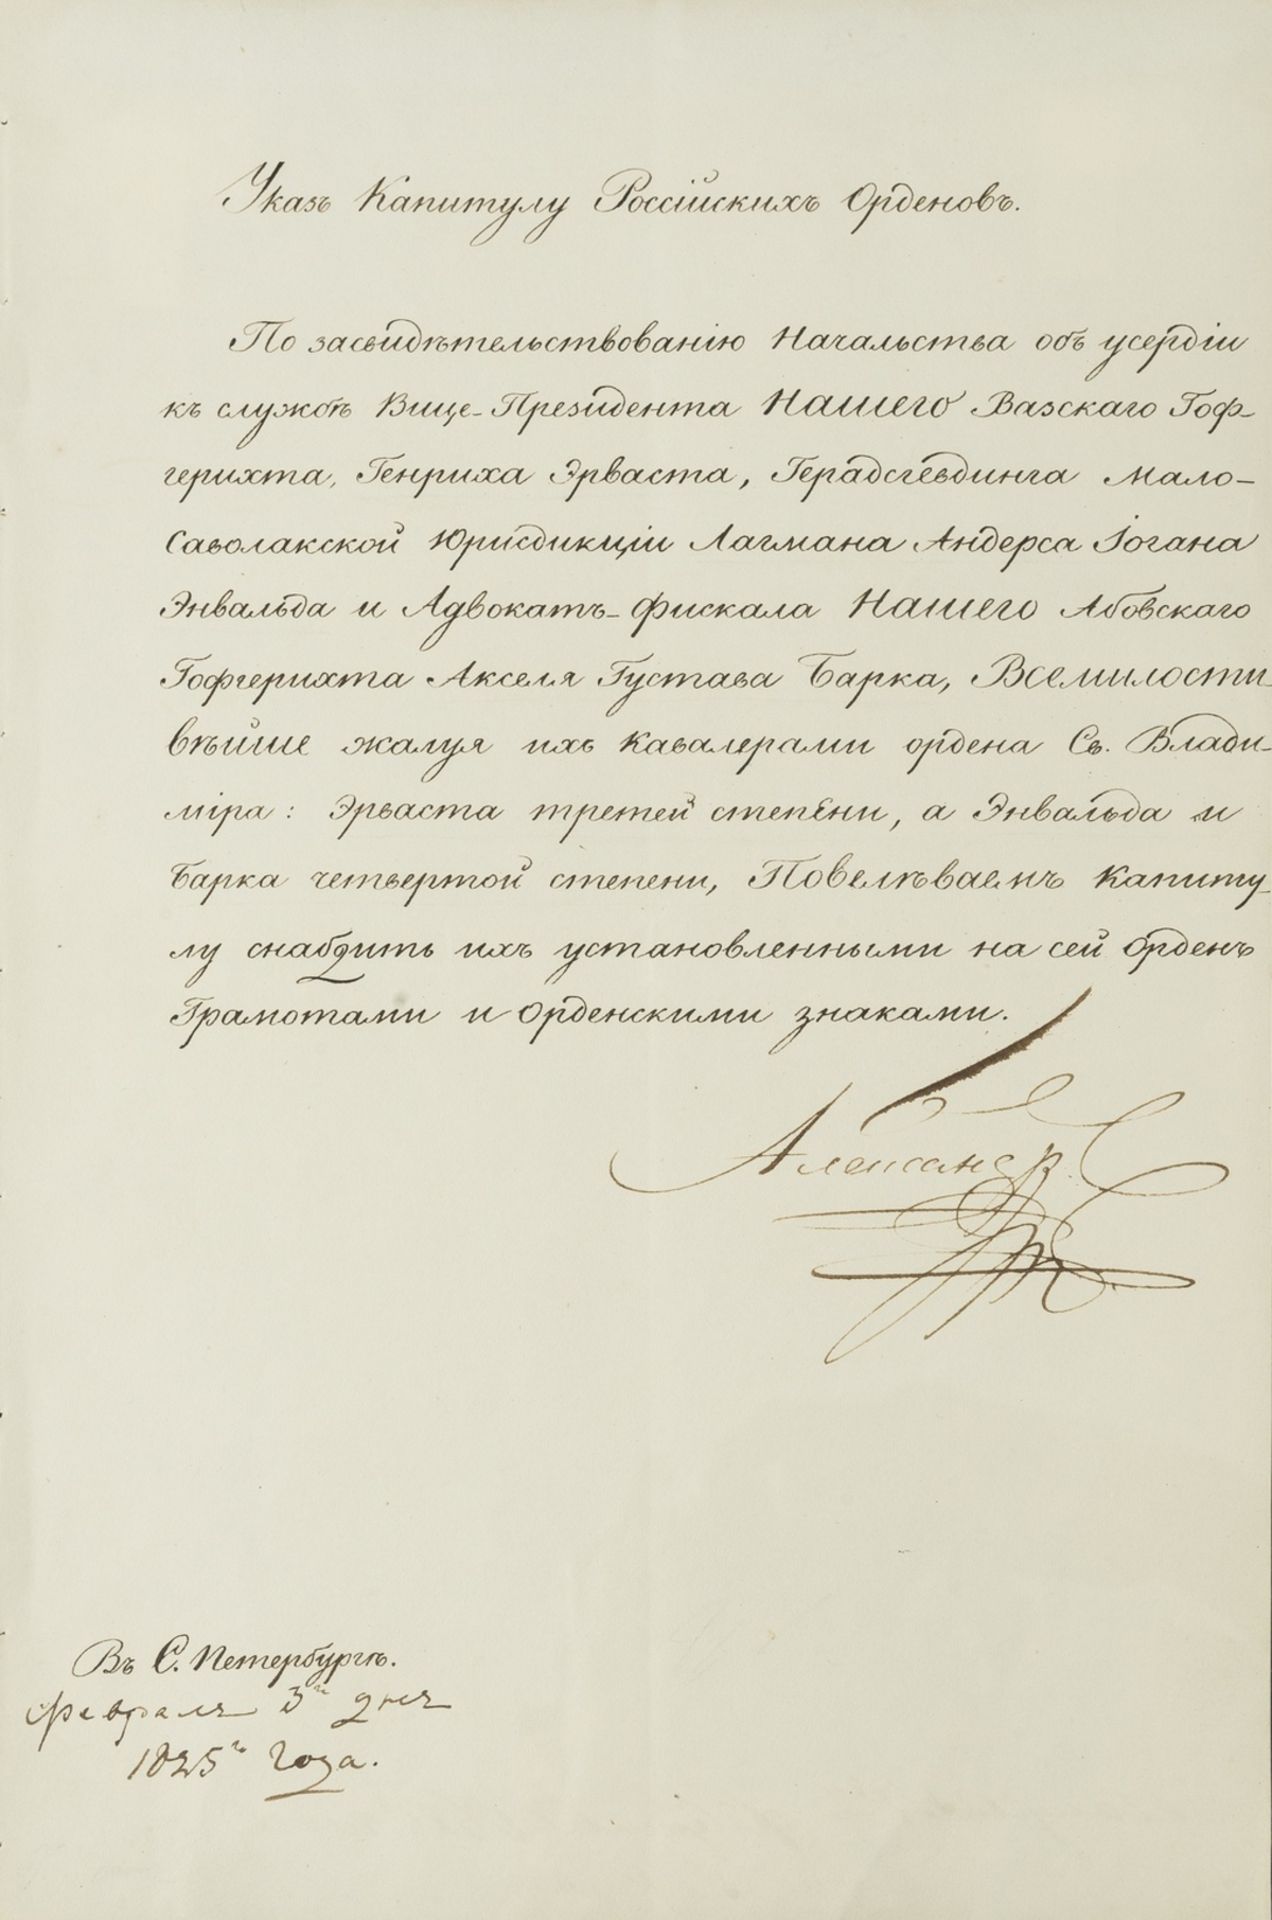 Указъ Капитулу Россійскихъ Орденовъ.
По засвидѣтельствованію Начальства объ усердіи
къ службѣ Вице-Президента Нашего Вазскаго Гоф-
герихта, Генриха Эрваста, Герадсгевдинга Мало-
Саволакской Юрисдикціи Лагмана Андерса Іогана
Энвальда и Адвокатъ-Фискала Нашего Абовскаго
Гофгерихта Акселя Густава Барка, Всемилости-
вѣйше жалуя ихъ Кавалерами ордена Св. Влади-
міра: Эрваста третей степени, а Энвальда и
Барка четвертой степени, Повелѣваемъ Капиту-
лу снабдить ихъ установленными на сей Орденъ
Грамотами и Орденскими знаками.
Александр
Въ С. Петербургѣ.
Февраля 3го дня
1825го Года.